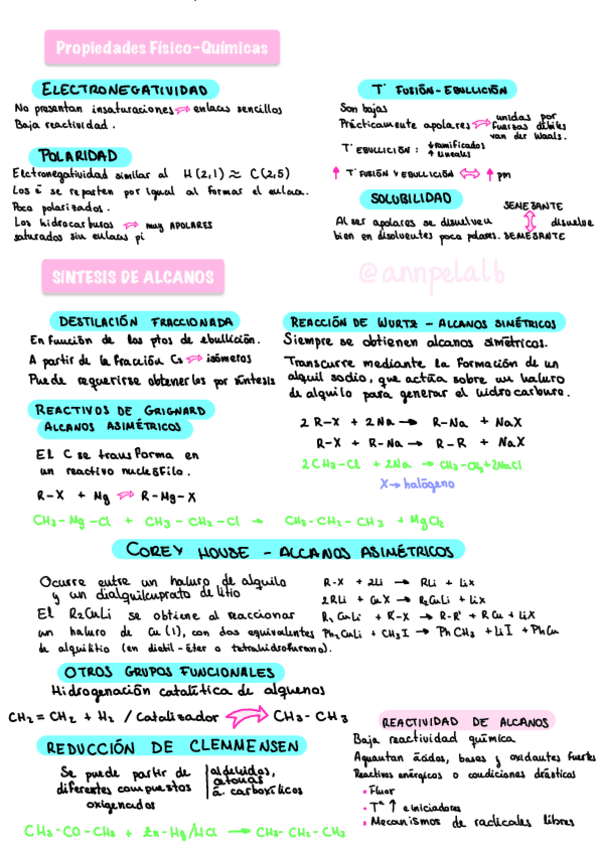 Propiedades Físico-Químicas
ELECTRONEGATIVIDAD
No presentan insaturaciones ⇨ enlaces sencillos
Baja reactividad.
POLARIDAD
Electronegatividad similar al H(2,1) ≈ C(2,5)
Los ē se reparten por igual al formar el enlace.
Poco polarizados.
Los hidrocarburos ⇨ muy APOLARES
saturados sin enlaces pi
Tª FUSIÓN-EBULLICIÓN
Son bajas
Prácticamente apolares ⇨ unidas por
fuerzas débiles
van der Waals.
Tª EBULLICIÓN: ↓ramificados
↑ lineales
↑ Tª FUSIÓN Y EBULLICIÓN ⇔ ↑ pm
SOLUBILIDAD
Al ser apolares se disuelven
bien en disolventes poco polares.
SEMEJANTE
disuelve
SEMEJANTE
SÍNTESIS DE ALCANOS
@annpelalb
DESTILACIÓN FRACCIONADA
En función de los ptos de ebullición.
A partir de la fracción C5 ⇨ isómeros
Puede requerirse obtenerlos por síntesis
REACTIVOS DE GRIGNARD
ALCANOS ASIMÉTRICOS
El C se transforma en
un reactivo nucleófilo.
R-X + Mg ⇨ R-Mg-X
CH3-Mg-Cl + CH3-CH2-Cl → CH3-CH2-CH3 + MgCl2
REACCIÓN DE WURTZ - ALCANOS SIMÉTRICOS
Siempre se obtienen alcanos simétricos.
Transcurre mediante la formación de un
alquil sodio, que actúa sobre un haluro
de alquilo para generar el hidrocarburo.
2 R-X + 2Na → R-Na + NaX
R-X + R-Na → R-R + NaX
2CH3-Cl + 2Na → CH3-CH3 + 2NaCl
X→ halógeno
COREY HOUSE - ALCANOS ASIMÉTRICOS
Ocurre entre un haluro de alquilo
y un dialquilcuprato de litio
El R2CuLi se obtiene al reaccionar
un haluro de Cu(I), con dos equivalentes
de alquilitio (en dietil-éter o tetrahidrofurano).
R-X + 2Li → RLi + LiX
2RLi + CuX → R2CuLi + LiX
R2CuLi + R'-X → R-R' + RCu + LiX
Ph2CuLi + CH3I → PhCH3 + LiI + PhCu
OTROS GRUPOS FUNCIONALES
Hidrogenación catalítica de alquenos
CH2=CH2 + H2 / Catalizador ⇨ CH3-CH3
REDUCCIÓN DE CLEMMENSEN
Se puede partir de
diferentes compuestos
oxigenados
aldehídos,
cetonas
á carboxílicos
CH3-CO-CH3 + Zn-Hg/HCl → CH3-CH2-CH3
REACTIVIDAD DE ALCANOS
Baja reactividad química
Aguantan ácidos, bases y oxidantes fuertes
Reactivos enérgicos o condiciones drásticas
• Fluor
• Tª ↑ e iniciadores
• Mecanismos de radicales libres